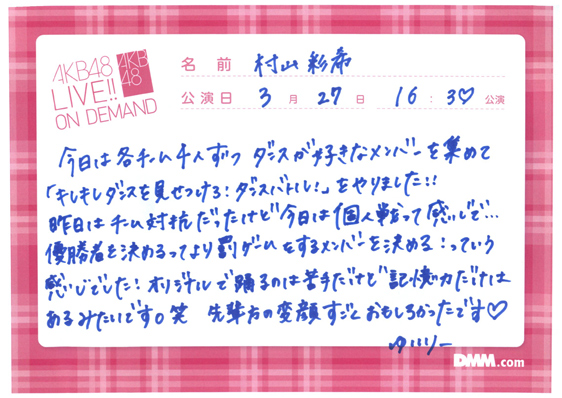 AKB48
LIVE!!
ON DEMAND
AKB
48
名前 村山彩希
公演日 3月27日 16:30公演
今日は各チーム4人ずつ ダンスが好きなメンバーを集めて
「キレキレダンスを見せつけろ!ダンスバトル!」をやりました!!
昨日はチーム対抗だったけど今日は個人戦って感じで…
優勝者を決めるってより罰ゲームをするメンバーを決める!っていう
感じでした!オリジナルで踊るのは苦手だけど記憶力だけは
あるみたいです。笑 先輩方の変顔すごくおもしろかったです♡
ゆいりー
DMM.com